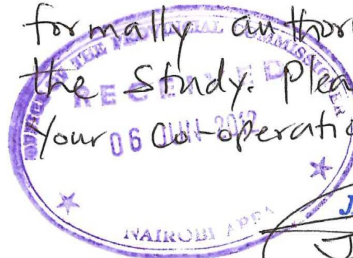 formally author
the study. Plea
your co-operatio
OFFICE OF THE PROVINCIAL COMMISSIONER
RECEIVED
06 JUN 2012
NAIROBI AREA
J
J